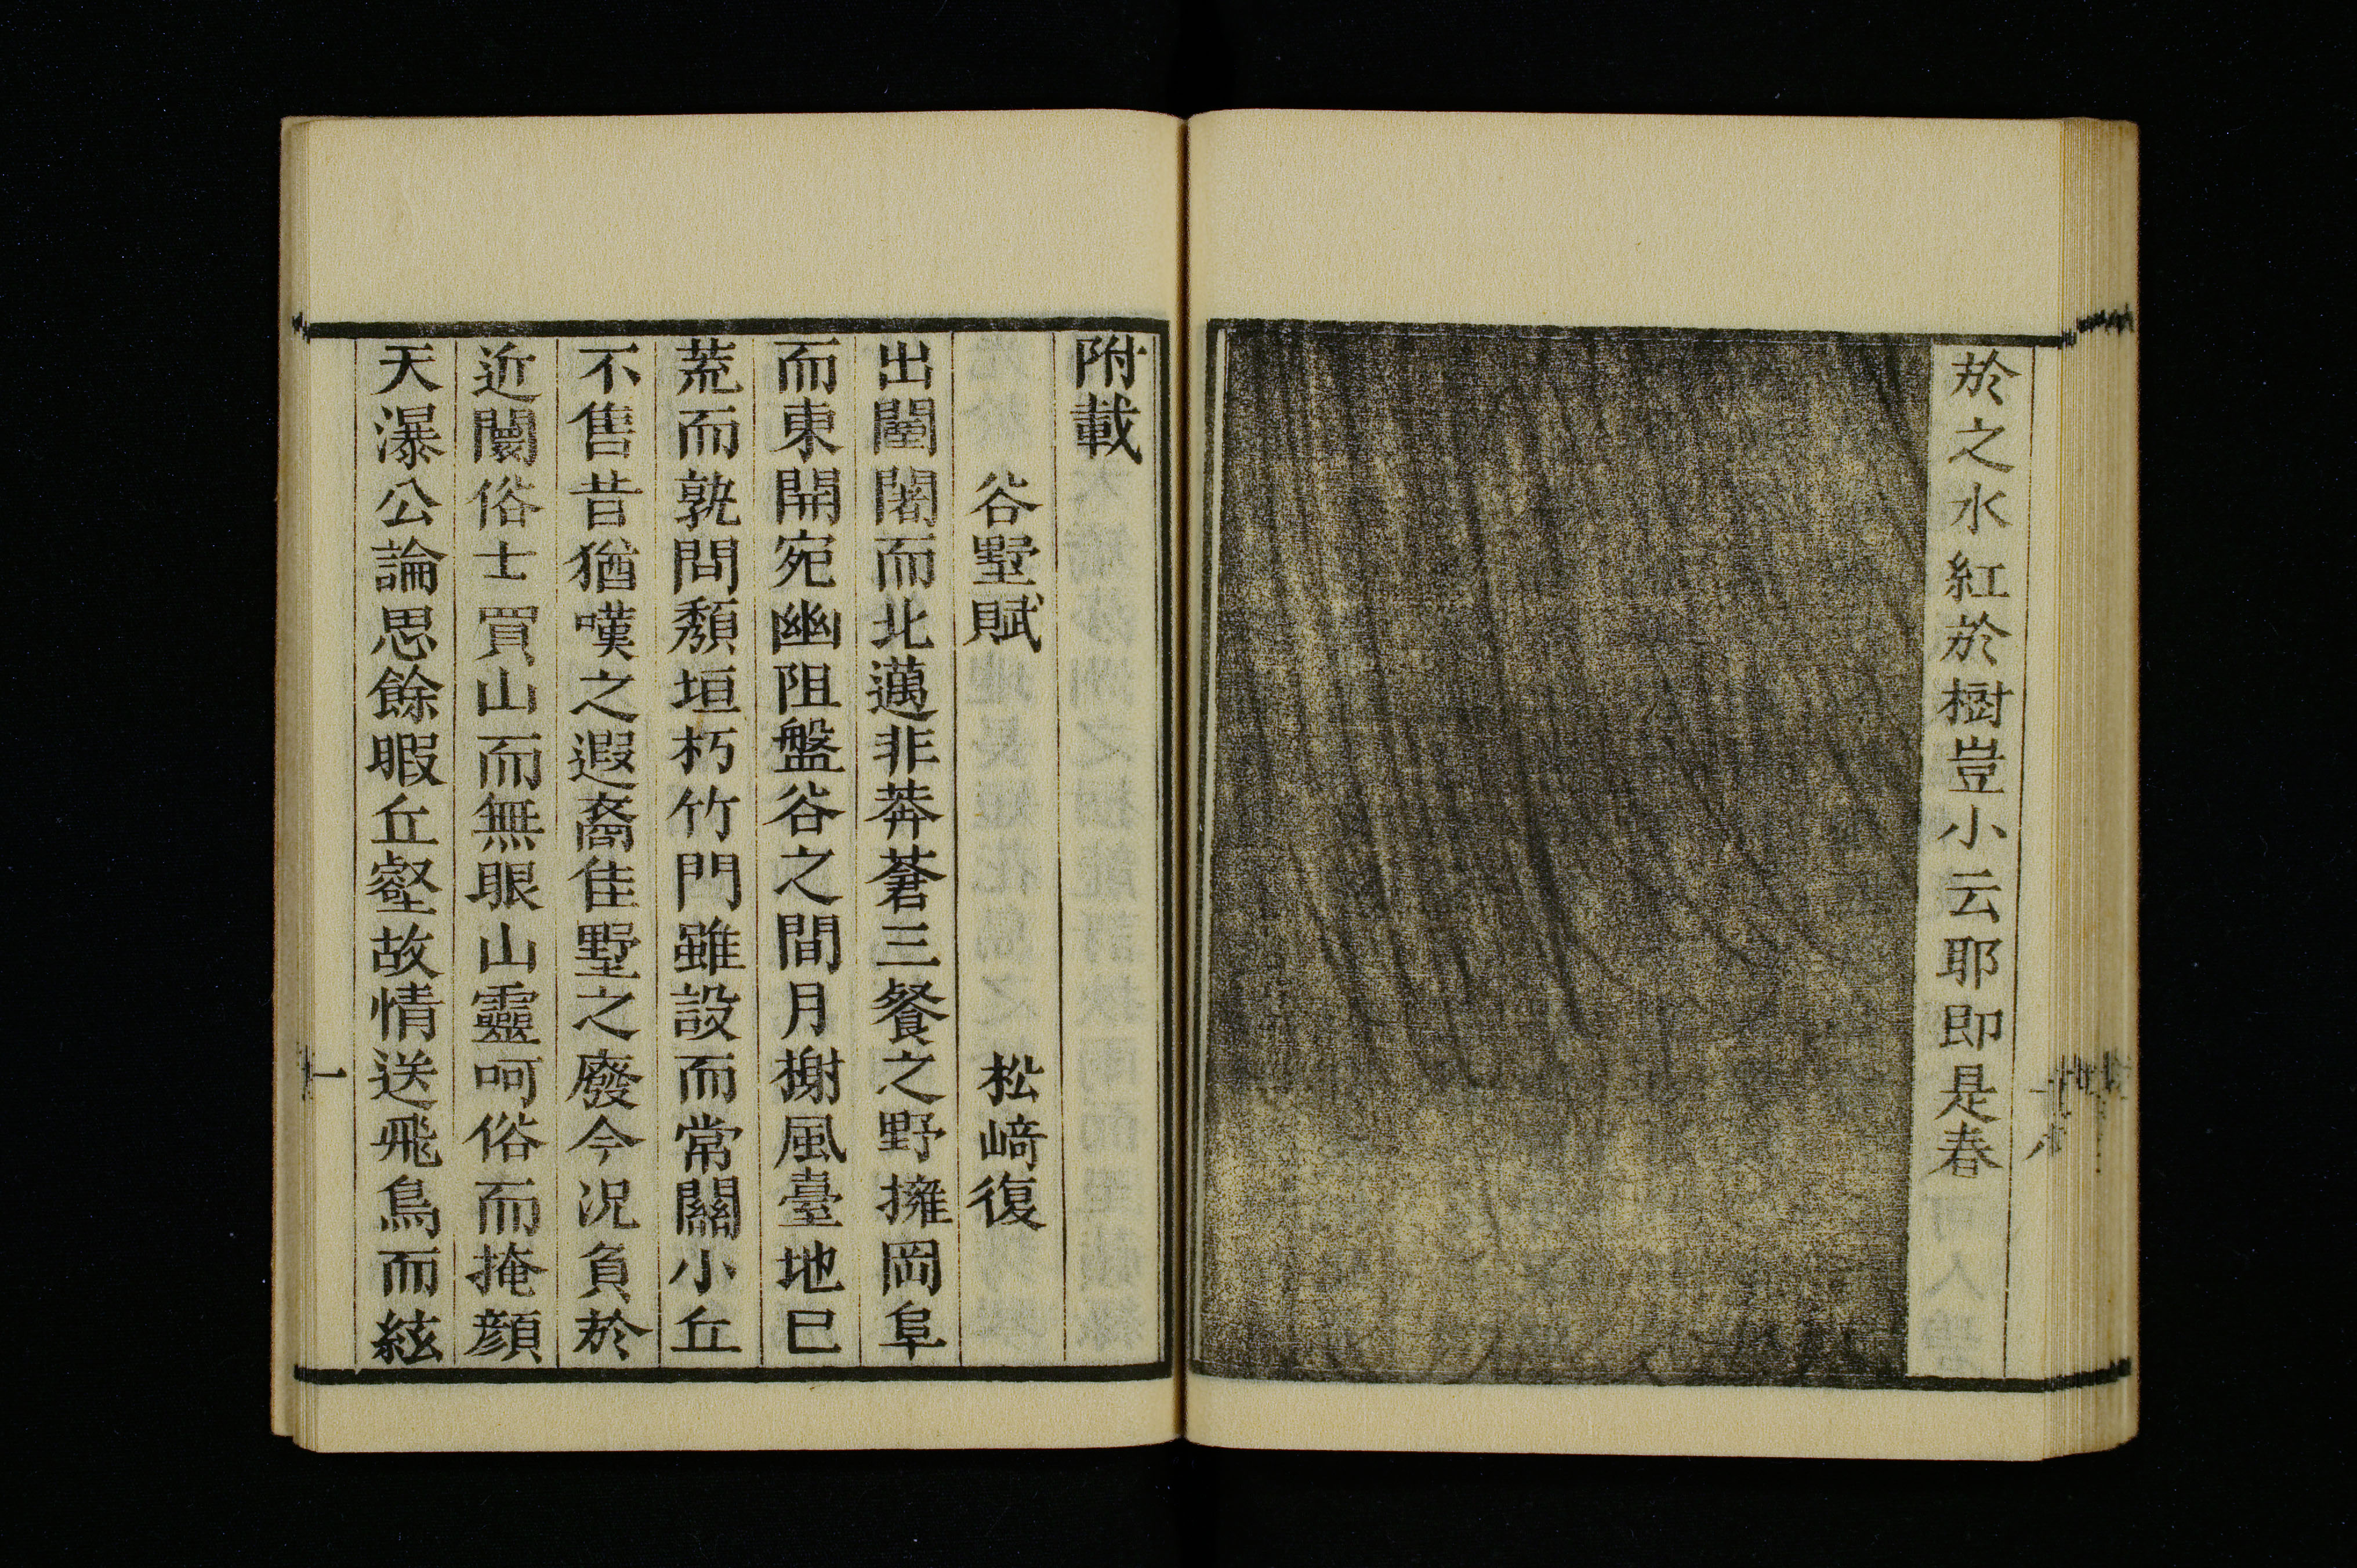 於之水紅於樹豈小云耶即是春
附載
谷墅賦 松﨑復
出闉闍而北邁非莽蒼三餐之野擁岡阜
而東開宛幽阻盤谷之間月榭風臺地已
荒而孰問頽垣朽竹門雖設而常關小丘
不售昔猶嘆之遐裔佳墅之廢今況負於
近闤俗士買山而無眼山靈呵俗而掩顔
天瀑公論思餘暇丘壑故情送飛鳥而絃
一